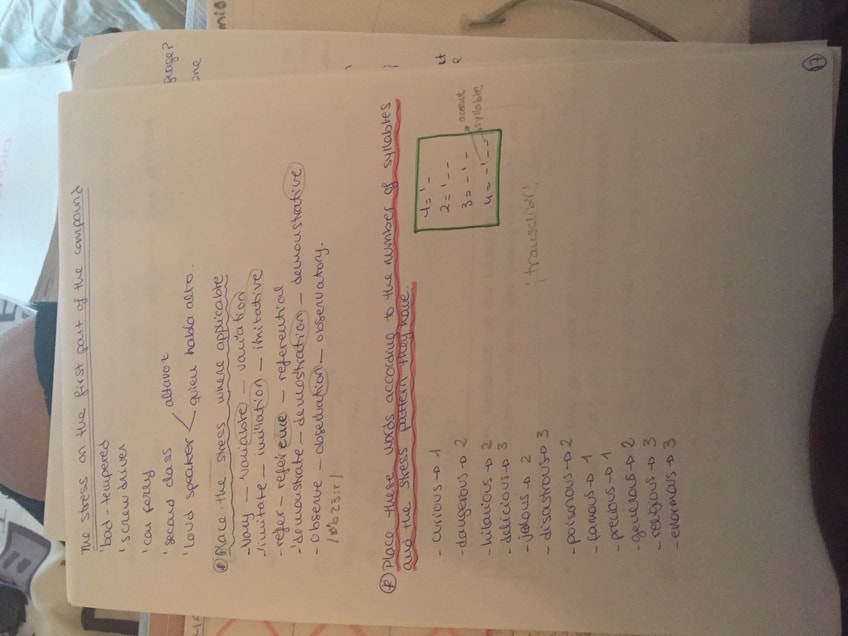 The stress on the first part of the compound
'bad-tempered
'screw driver
'car ferry
'second class
'loud speaker < altavoz
quien habla alto.
Place the stress where applicable
-Vary - variable - variation
-'imitate - imitation - imitative
-refer - referee - referential
-'demonstrate - demostration - demonstrative
-observe - observation - observatory.
Place these words according to the number of syllables
and the stress pattern they have.
1 = '-
2 = '--
3 = -'-
4 = -'--
syllable
¡transcribir!
- curious → 1
- dangerous → 2
- hilarious → 2
- delicious → 3
- jelous → 2
- disastrous → 3
- poisonous → 2
- famous → 1
- precious → 1
- generous → 2
- religious → 3
- enormous → 3
17